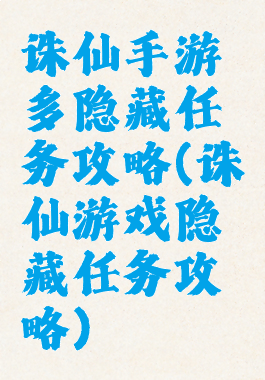 诛仙手游
多隐藏任
务攻略(诛
仙游戏隐
藏任务攻
略)